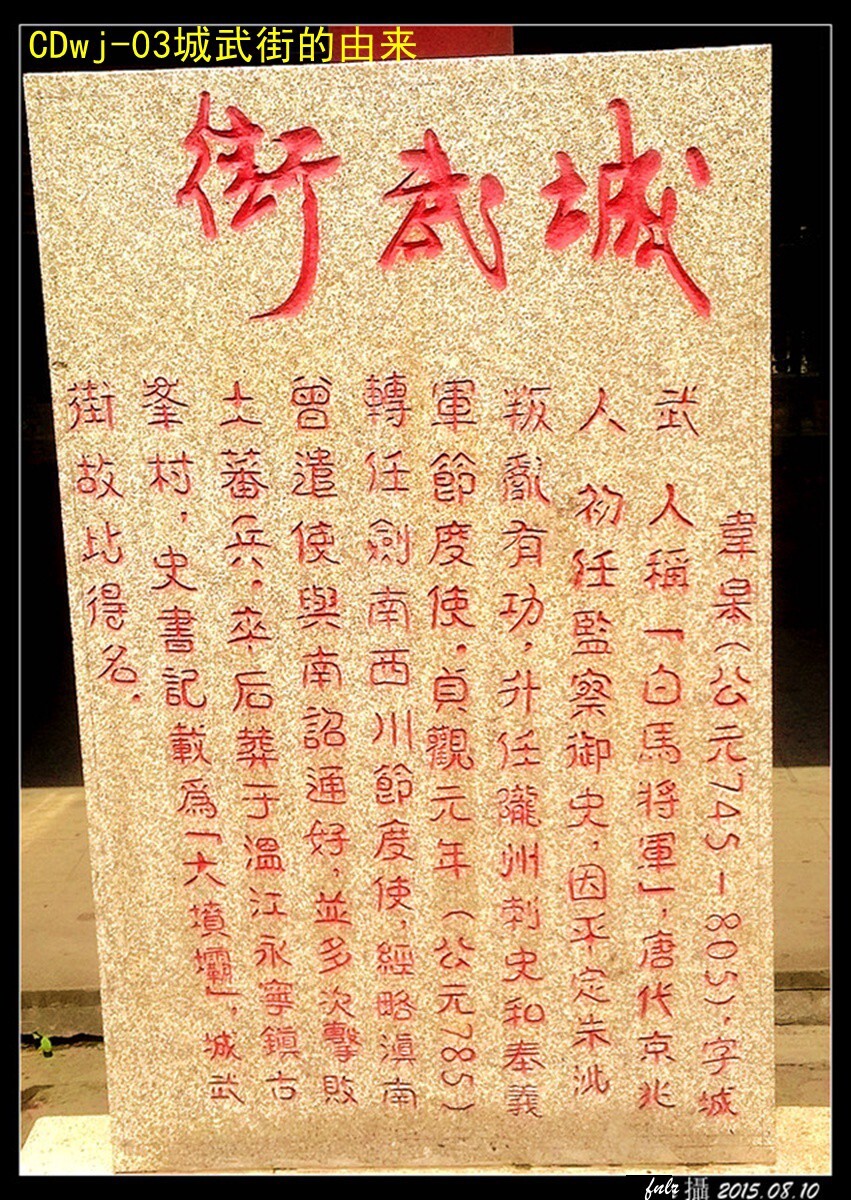 CDwj-03城武街的由来
城武街
韋皋(公元745-805),字城
武 人稱「白馬将軍」,唐代京兆
人 初任監察御史,因平定朱泚
叛亂有功,升任隴州刺史和奉義
軍節度使.貞觀元年(公元785)
轉任劍南西川節度使,經略滇南
曾遣使與南詔通好,並多次擊敗
土蕃兵.卒后葬于溫江永寧鎮古
峯村,史書記載爲「大墳壩」,城武
街故比得名.
fnlz 攝 2015.08.10